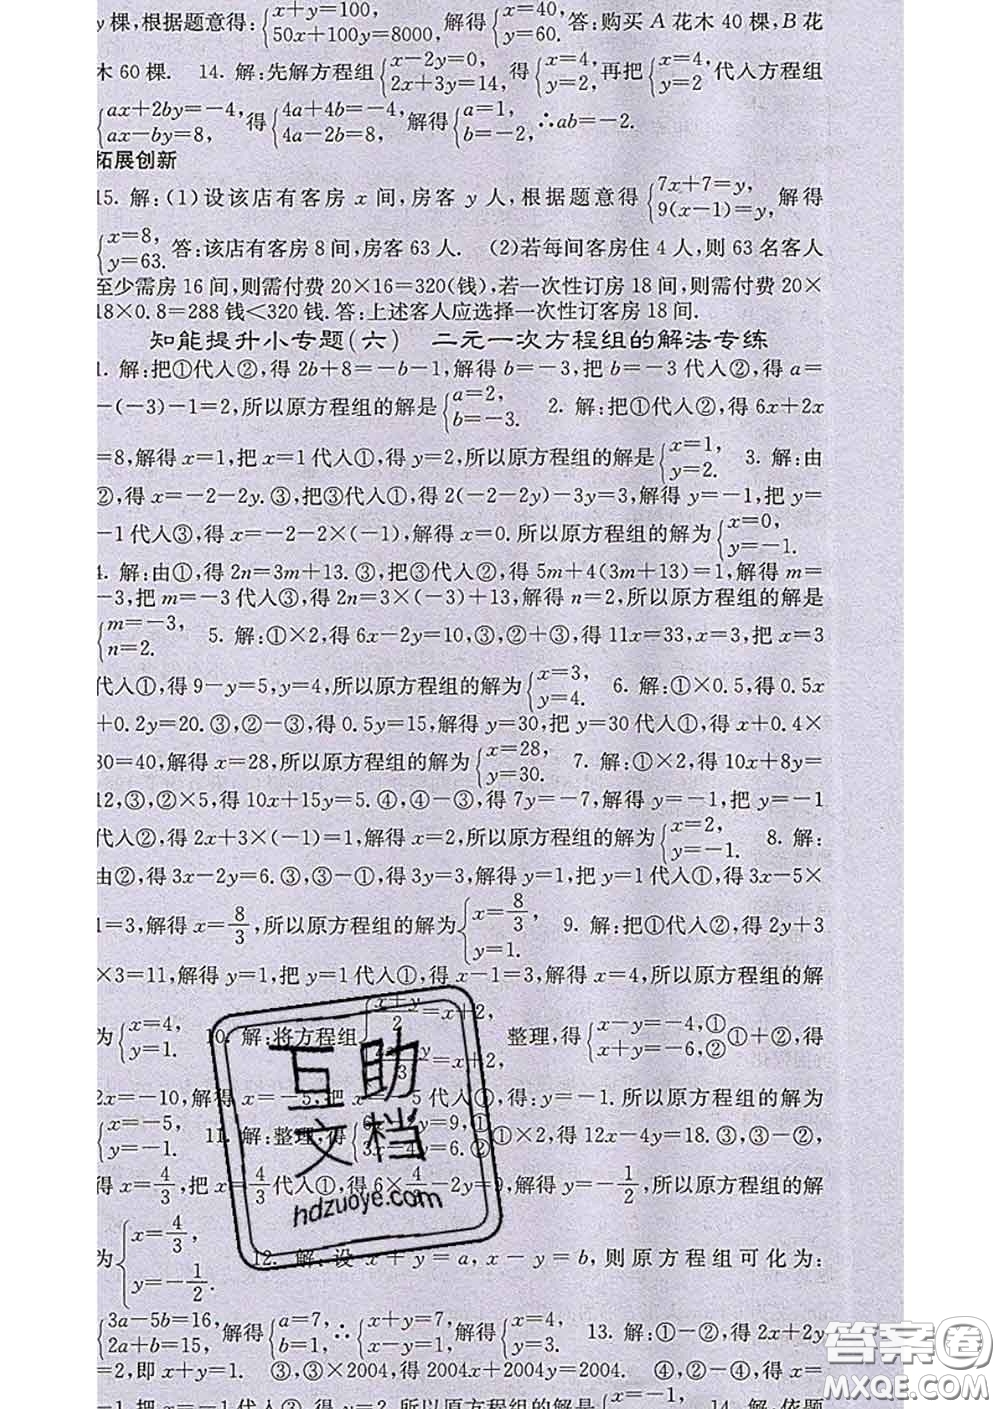 y棵,根据题意得:{x+y=100, 50x+100y=8000,解得{x=40, y=60.答:购买A花木40棵,B花
木60棵. 14. 解:先解方程组{x-2y=0, 2x+3y=14,得{x=4, y=2,再把{x=4, y=2代入方程组
{ax+2by=-4, ax-by=8,得{4a+4b=-4, 4a-2b=8,解得{a=1, b=-2,∴ab=-2.
拓展创新
15. 解:(1)设该店有客房x间,房客y人,根据题意得{7x+7=y, 9(x-1)=y,解得
{x=8, y=63.答:该店有客房8间,房客63人. (2)若每间客房住4人,则63名客人
至少需房16间,则需付费20×16=320(钱),若一次性订房18间,则需付费20×
18×0.8=288钱<320钱.答:上述客人应选择一次性订客房18间.
知能提升小专题(六) 二元一次方程组的解法专练
1. 解:把①代入②,得2b+8=-b-1,解得b=-3,把b=-3代入①,得a=
-(-3)-1=2,所以原方程组的解是{a=2, b=-3. 2. 解:把①代入②,得6x+2x
=8,解得x=1,把x=1代入①,得y=2,所以原方程组的解是{x=1, y=2. 3. 解:由
②,得x=-2-2y.③,把③代入①,得2(-2-2y)-3y=3,解得y=-1,把y=
-1代入③,得x=-2-2×(-1),解得x=0.所以原方程组的解为{x=0, y=-1.
4. 解:由①,得2n=3m+13.③,把③代入②,得5m+4(3m+13)=1,解得m=
-3,把m=-3代入③,得2n=3×(-3)+13,解得n=2,所以原方程组的解是
{m=-3, n=2. 5. 解:①×2,得6x-2y=10,③,②+③,得11x=33,x=3,把x=3
代入①,得9-y=5,y=4,所以原方程组的解为{x=3, y=4. 6. 解:①×0.5,得0.5x
+0.2y=20.③,②-③,得0.5y=15,解得y=30,把y=30代入①,得x+0.4×
30=40,解得x=28,所以原方程组的解为{x=28, y=30. 7. 解:①×2,得10x+8y=
12,③,②×5,得10x+15y=5.④,④-③,得7y=-7,解得y=-1,把y=-1
代入②,得2x+3×(-1)=1,解得x=2,所以原方程组的解为{x=2, y=-1. 8. 解:
由②,得3x-2y=6.③,③-①,得3y=3,解得y=1,把y=1代入①,得3x-5×
1=3,解得x=8/3,所以原方程组的解为{x=8/3, y=1. 9. 解:把①代入②,得2y+3
×3=11,解得y=1,把y=1代入①,得x-1=3,解得x=4,所以原方程组的解
为{x=4, y=1. 10. 解:将方程组 x+y/2=x+2, =x+2, 整理,得{x-y=-4,① x+y=-6,②①+②,得
2x=-10,解得x=-5,把x=-5代入①,得:y=-1.所以原方程组的解为
{x=-5, y=-1. 11. 解:整理,得 y=9,① =6.②①×2,得12x-4y=18.③,③-②,
得x=4/3,把x=4/3代入①,得6×4/3-2y=9,解得y=-1/2,所以原方程组的解
为{x=4/3, y=-1/2. 12. 解:设x+y=a,x-y=b,则原方程组可化为:
{3a-5b=16, 2a+b=15,解得{a=7, b=1,∴{x+y=7, x-y=1,解得{x=4, y=3. 13. 解:①-②,得2x+2y
=2,即x+y=1. ③,③×2004,得2004x+2004y=2004. ④,②-④,得x=
-1,把x=-1代入③,得y=2.所以原方程组的解为{x=-1, 14. 解:依题
互助文档
hdzuoye.com
答案圈
MXQE.COM